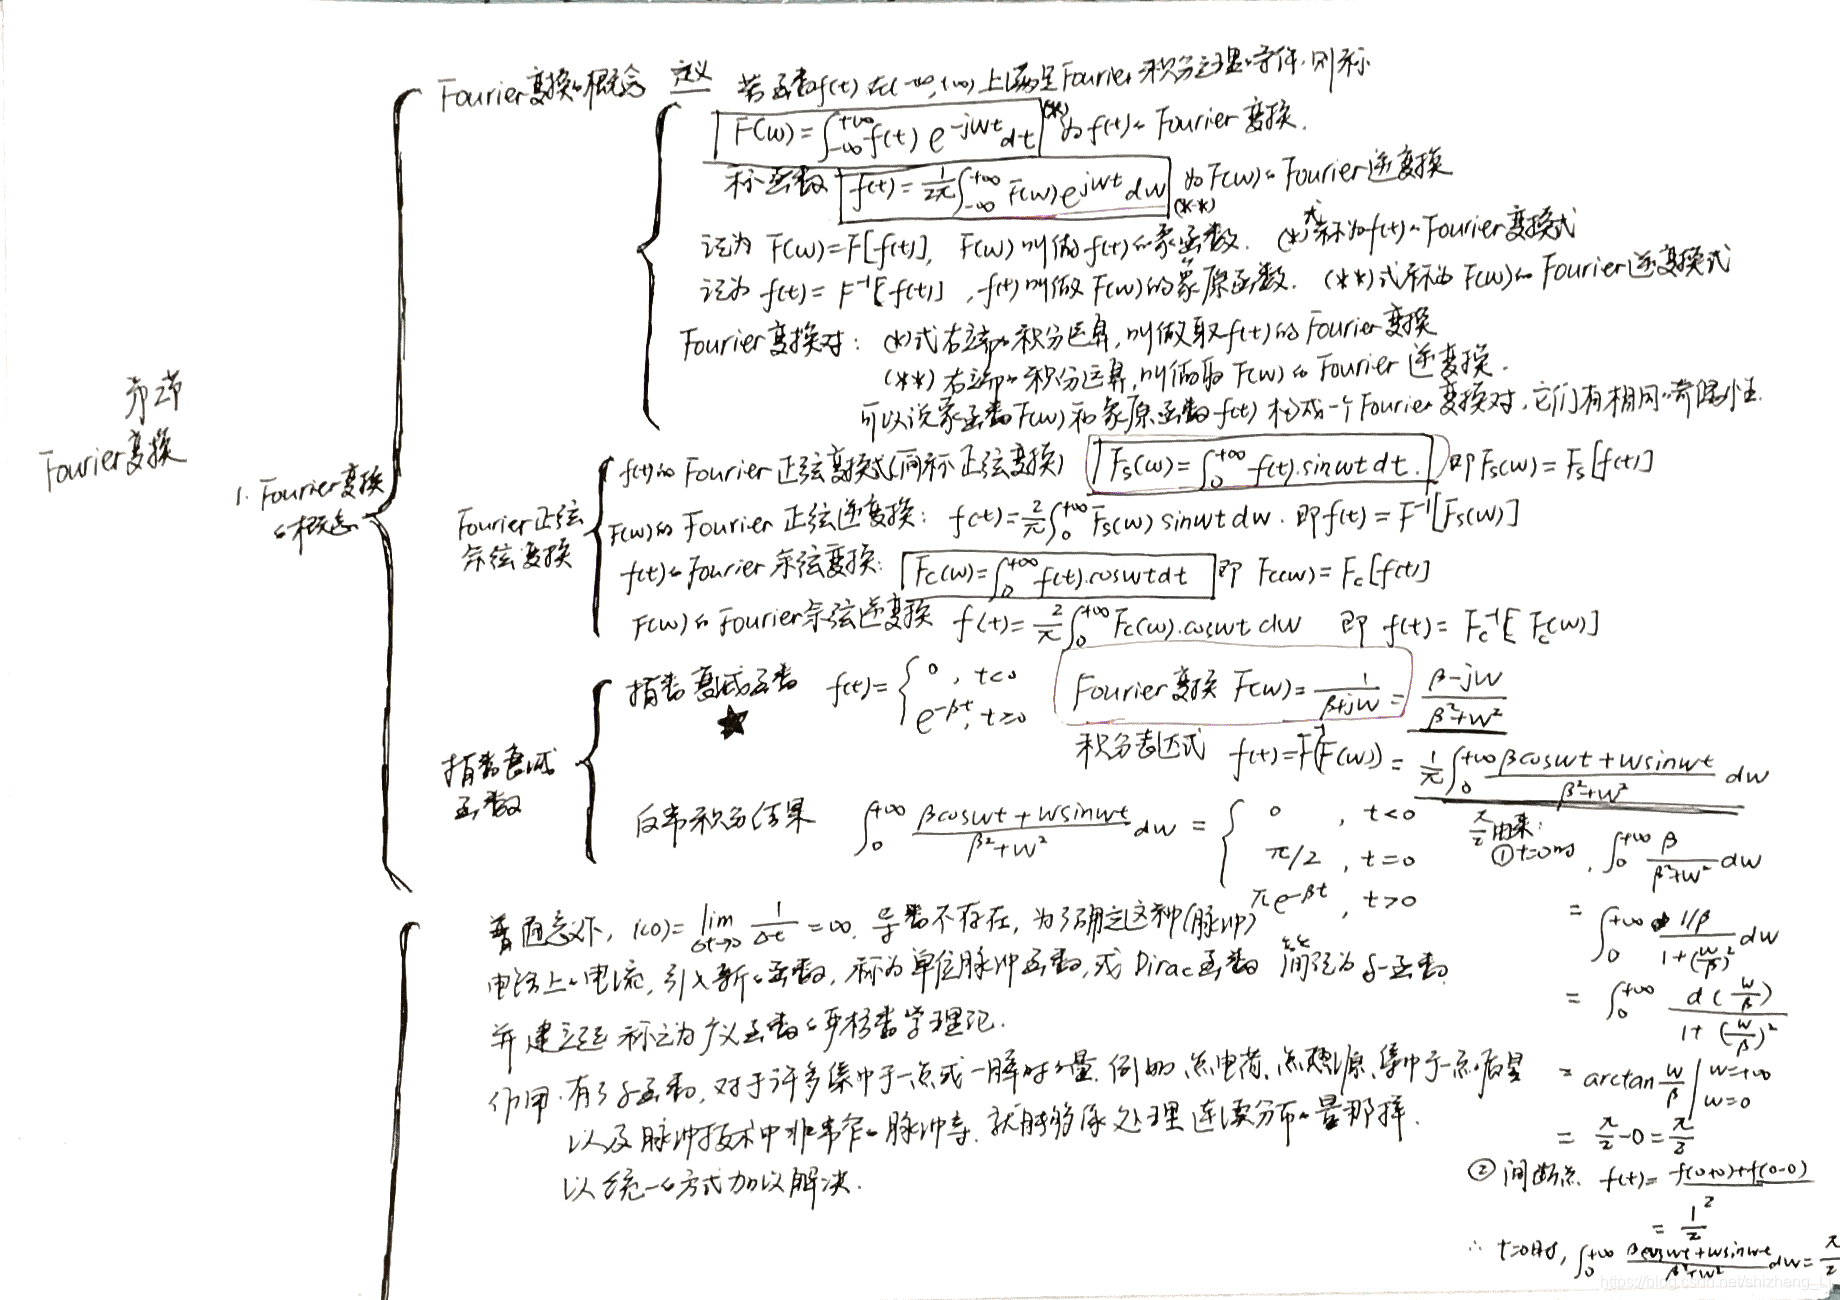 第二节
Fourier变换
1. Fourier变换
的概念
Fourier变换的概念 定义 若函数f(t)在(-∞,+∞)上满足Fourier积分定理的条件,则称
F(w)=∫_{-∞}^{+∞} f(t) e^{-jwt} dt (*) 为f(t)的Fourier变换.
称函数 f(t)=1/2π ∫_{-∞}^{+∞} F(w)e^{jwt} dw (**) 为F(w)的Fourier逆变换
记为 F(w)=F[f(t)], F(w)叫做f(t)的象函数. (*)式称为f(t)的Fourier变换式
记为 f(t)=F^{-1}[f(t)], f(t)叫做F(w)的象原函数. (**)式称为F(w)的Fourier逆变换式
Fourier变换对: (*)式右端的积分运算,叫做取f(t)的Fourier变换
(**)右端的积分运算,叫做取F(w)的Fourier逆变换.
可以说象函数F(w)和象原函数f(t)构成一个Fourier变换对,它们有相同的奇偶性.
Fourier正弦
余弦变换
f(t)的Fourier正弦变换式(简称正弦变换) Fs(w)=∫_0^{+∞} f(t).sinwt dt. 即Fs(w)=Fs[f(t)]
F(w)的Fourier正弦逆变换: f(t)=2/π ∫_0^{+∞} Fs(w) sinwt dw. 即f(t)=F^{-1}[Fs(w)]
f(t)的Fourier余弦变换: Fc(w)=∫_0^{+∞} f(t).coswtdt 即 Fc(w)=Fc[f(t)]
F(w)的Fourier余弦逆变换 f(t)=2/π ∫_0^{+∞} Fc(w).coswt dw 即 f(t)=Fc^{-1}[Fc(w)]
指数衰减
函数
指数衰减函数 ★ f(t)={ 0, t<0
e^{-βt}, t≥0
Fourier变换 F(w)=1/(β+jw) = (β-jw)/(β²+w²)
积分表达式 f(t)=F^{-1}(F(w))=1/π ∫_0^{+∞} (βcoswt+wsinwt)/(β²+w²) dw
反常积分结果 ∫_0^{+∞} (βcoswt+wsinwt)/(β²+w²) dw = { 0, t<0
π/2, t=0
πe^{-βt}, t>0
π/2由来:
①t=0时, ∫_0^{+∞} β/(β²+w²) dw
= ∫_0^{+∞} (1/β)/(1+(w/β)²) dw
= ∫_0^{+∞} d(w/β)/(1+(w/β)²)
= arctan w/β |_{w=0}^{w=+∞}
= π/2-0=π/2
②间断点 f(t)=(f(0+0)+f(0-0))/2
= 1/2
∴ t=0时, ∫_0^{+∞} (βcoswt+wsinwt)/(β²+w²) dw=π/2
普通意义下, i(0)=lim_{Δt→0} 1/Δt=∞. 导数不存在, 为了确定这种(脉冲)
电路上的电流,引入新的函数,称为单位脉冲函数,或Dirac函数 简记为δ-函数
并建立起称之为广义函数的严格数学理论.
作用.有了δ函数,对于许多集中于一点或一瞬时的量.例如,点电荷、点热源、集中于一点的质量
以及脉冲技术中非常窄的脉冲等.就能够像处理连续分布的量那样.
以统一的方式加以解决.
https://blog.csdn.net/shizheng_Li